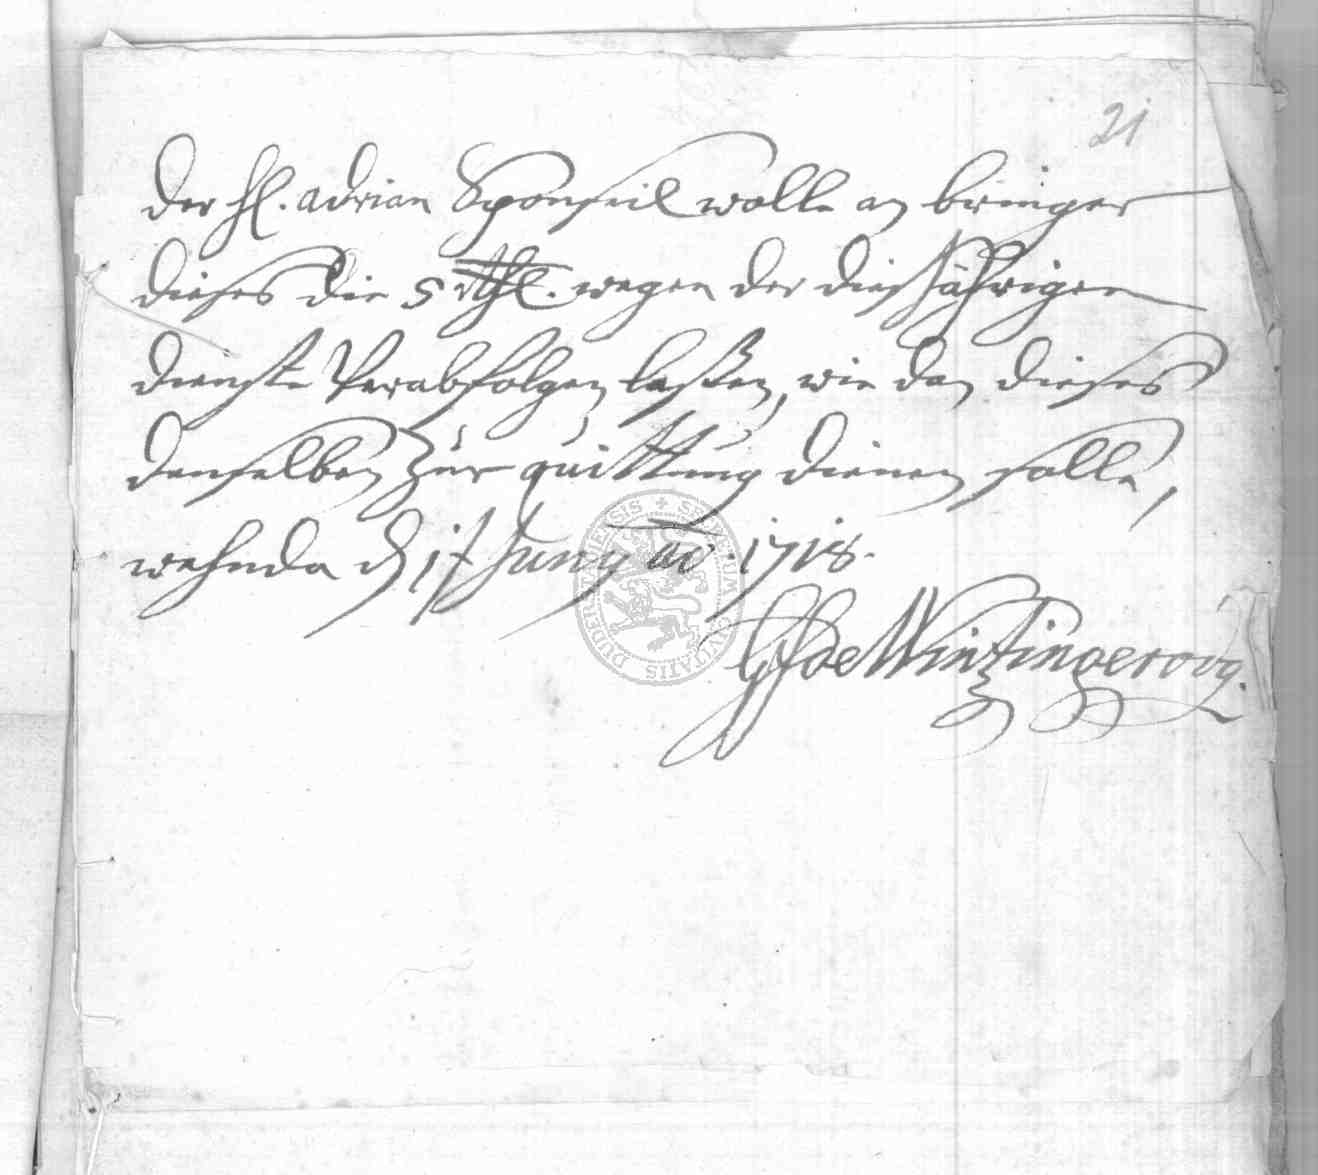 21
der hl. adrian Sponseil wolle an bringer
dieses die 5 rthl. wegen der diesjährigen
dienste Verabfolgen laßen, wie dan dieses
denselben zur quittung dienen solle,
wehnda d 17 Juny ao. 1718.
de Wintzingeroda
SECRETUM CIVITATIS DUDERSTADIENSIS